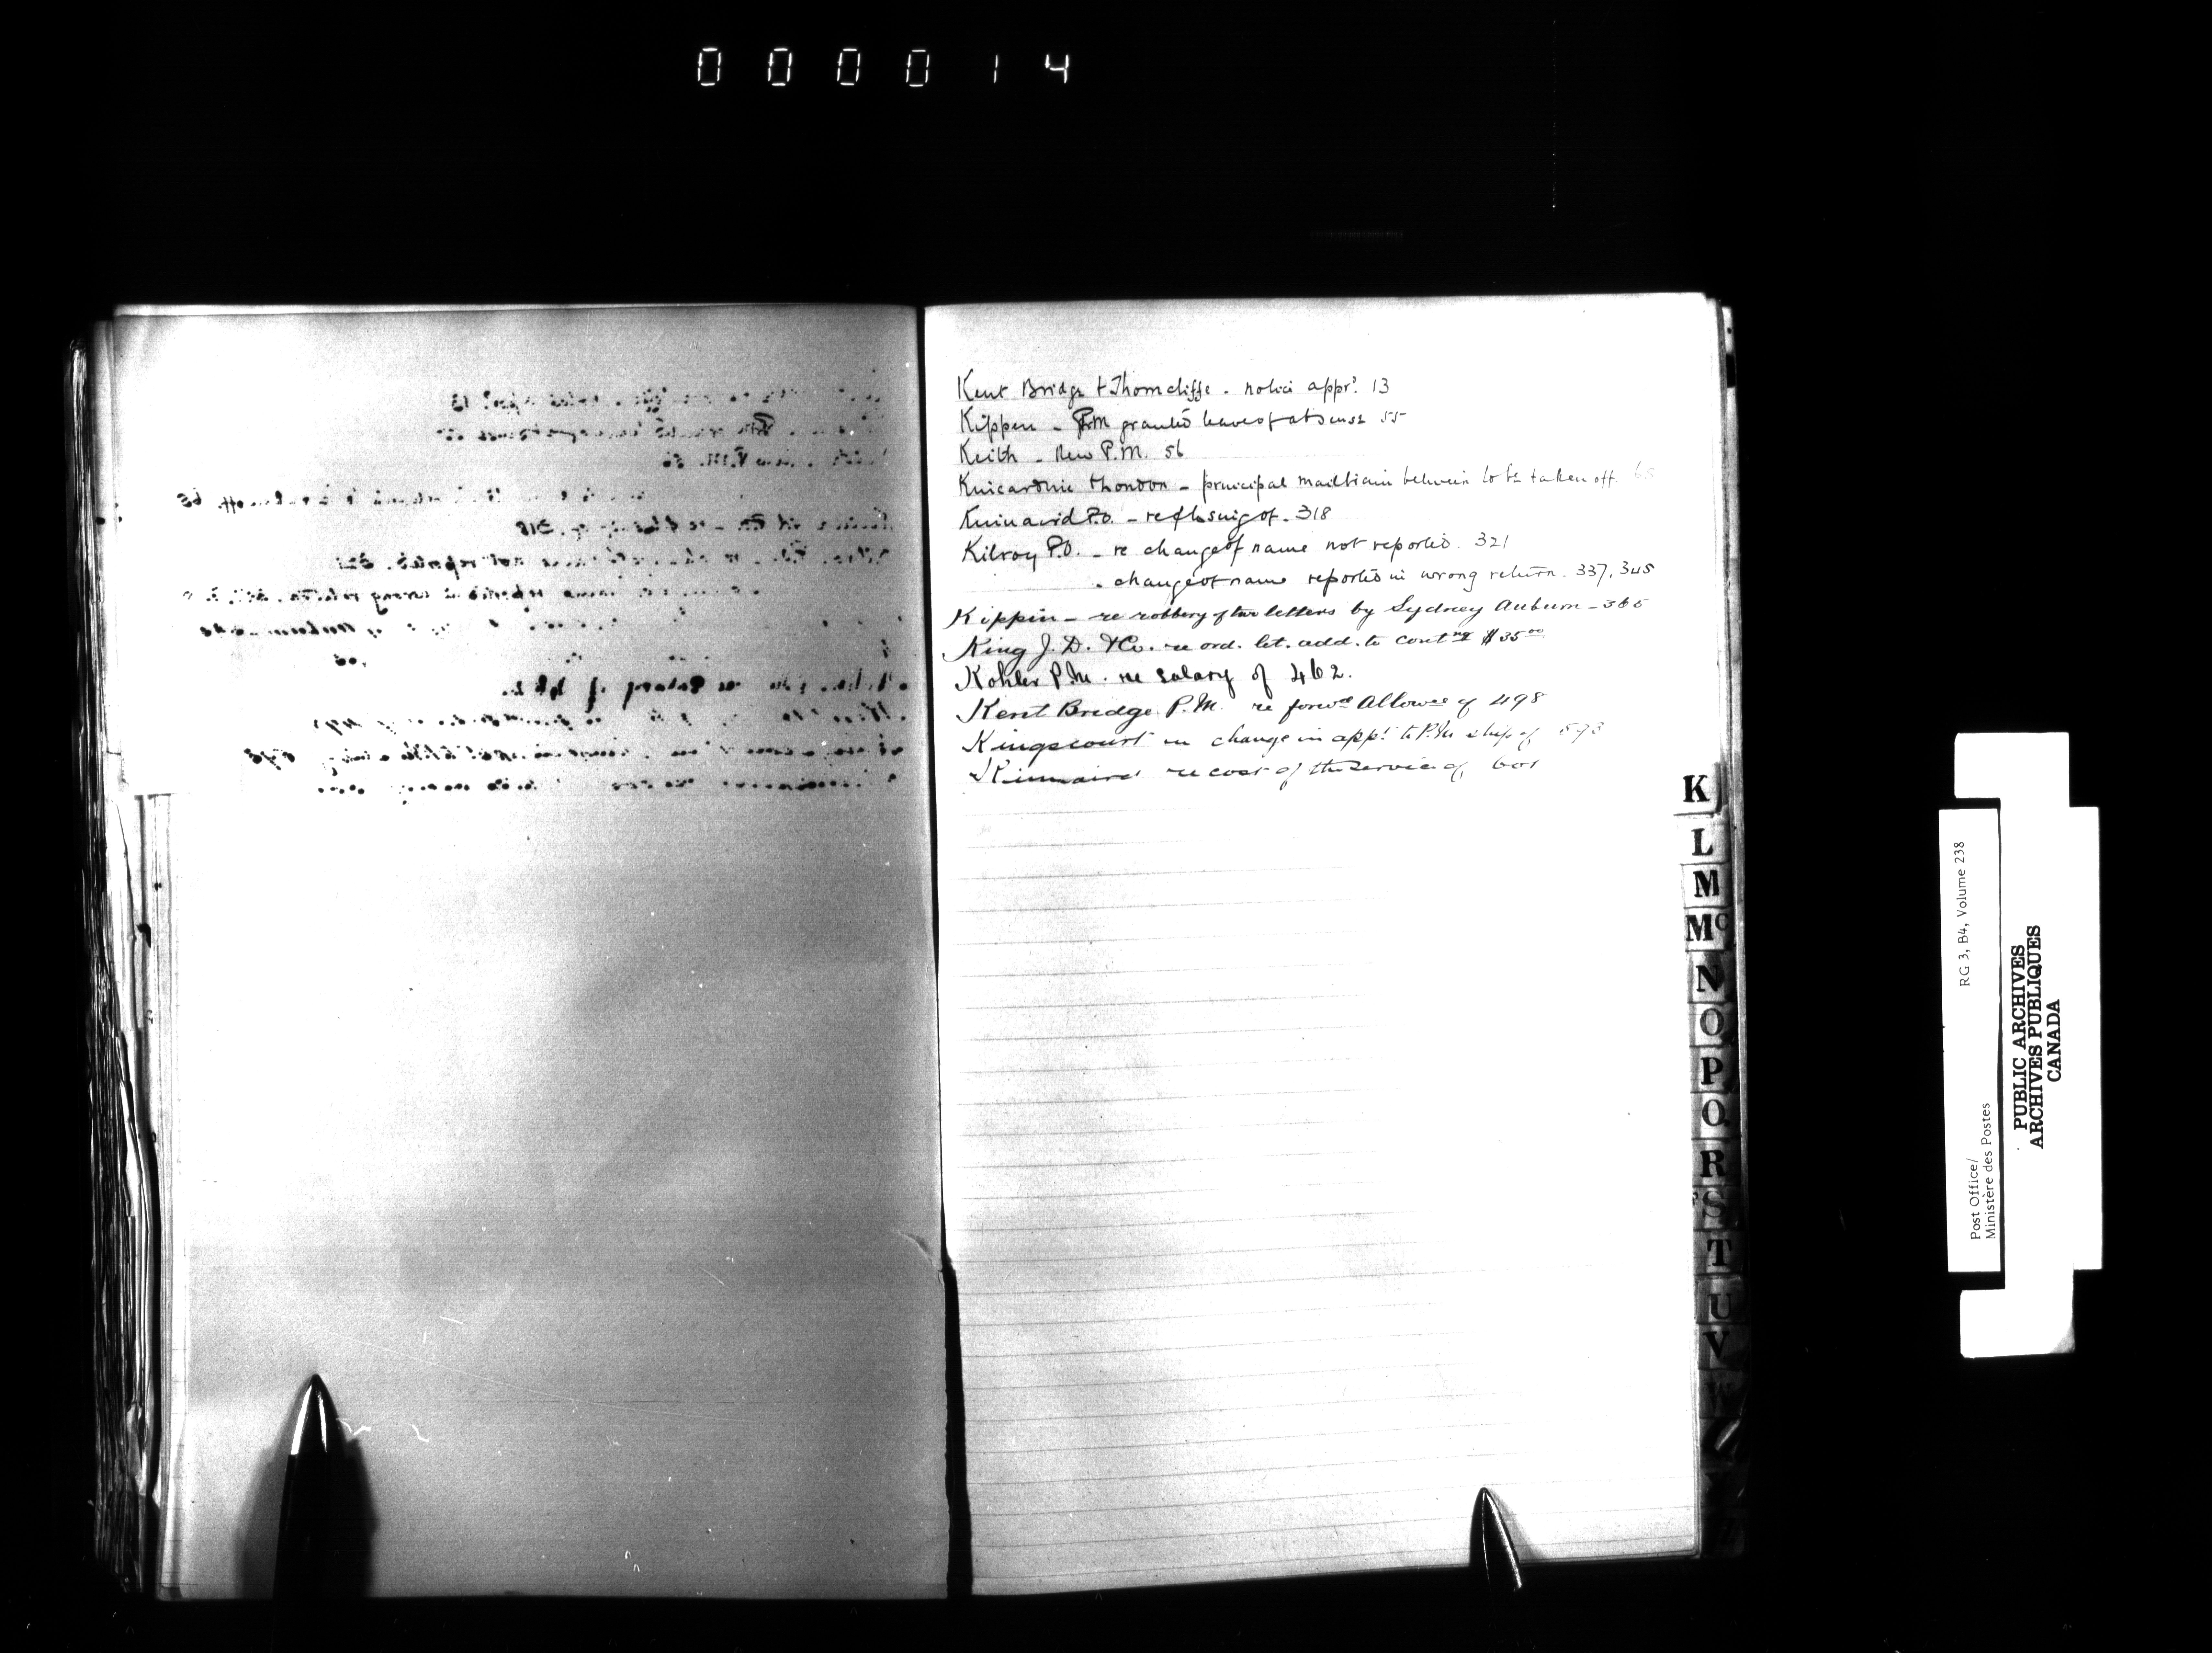 000014
Kent Bridge & Thorncliffe - notice appt. 13
Kippen - P.M granted leave of absence 55
Keith - New P.M. 56
Kincardine & London - principal mail train between to be taken off. 65
Kinnaird P.O. - re closing of - 318
Kilroy P.O. - re change of name not reported. 321
- change of name reported in wrong return. 337, 345
Kippin - re robbery of two letters by Sydney Auburn - 365
King J. D. & Co. re ord. let. add. to cont'ng $35.00
Kohler P.M. re salary of 462.
Kent Bridge P.M. re forwd Allowce of 498
Kingscourt re change in appt to P.M ship of 593
Kinnaird re cost of the service of 601
K
L
M
Mc
N
O
P
Q
R
S
T
U
V
W
Post Office/
Ministère des Postes
RG 3, B4, Volume 238
PUBLIC ARCHIVES
ARCHIVES PUBLIQUES
CANADA